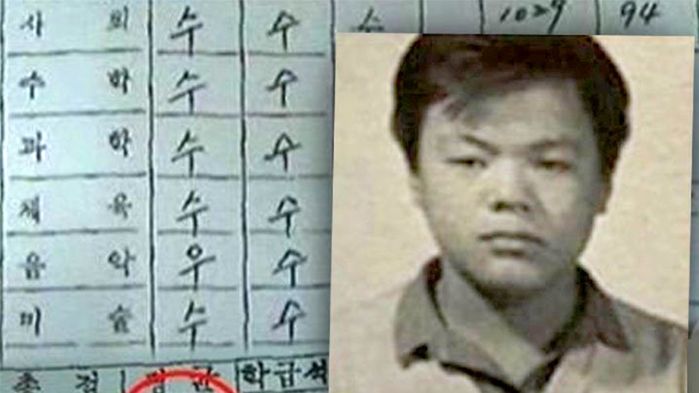 사 회 수 수 수 1029 94
수 학 수 수
과 학 수 수
체 육 수 수
음 악 우 수
미 술 수 수
총 점 평 균 학급석